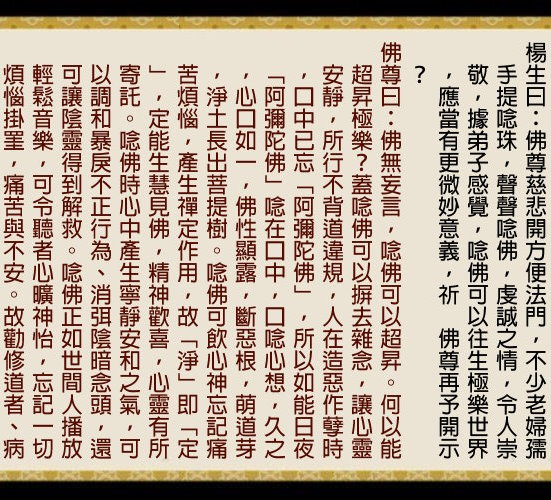 楊生曰：佛尊慈悲開方便法門，不少老婦孺
手提唸珠，聲聲唸佛，虔誠之情，令人崇
敬，據弟子感覺，唸佛可以往生極樂世界
，應當有更微妙意義，祈　佛尊再予開示
？
佛尊曰：佛無妄言，唸佛可以超昇。何以能
超昇極樂？蓋唸佛可以摒去雜念，讓心靈
安靜，所行不背道違規，人在造惡作孽時
，口中已忘「阿彌陀佛」，所以如能日夜
「阿彌陀佛」唸在口中，口唸心想，久之
，心口如一，佛性顯露，斷惡根，萌道芽
，淨土長出菩提樹。唸佛可飲心神忘記痛
苦煩惱，產生禪定作用，故「淨」即「定
」，定能生慧見佛，精神歡喜，心靈有所
寄託。唸佛時心中產生寧靜安和之氣，可
以調和暴戾不正行為、消弭陰暗念頭，還
可讓陰靈得到解救。唸佛正如世間人播放
輕鬆音樂，可令聽者心曠神怡，忘記一切
煩惱掛罣，痛苦與不安。故勸修道者、病